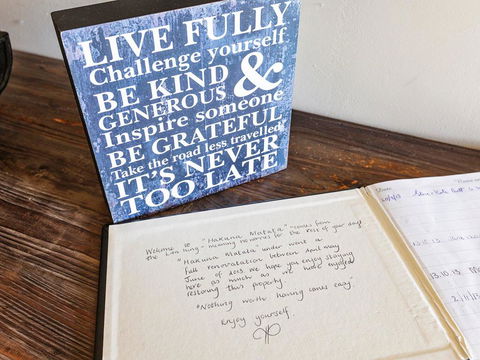 LIVE FULLY
Challenge yourself
BE KIND &
GENEROUS
Inspire someone
BE GRATEFUL
Take the road less travelled
IT'S NEVER
TOO LATE
Welcome to "Hakuna Matata" - comes from
the Lion King - meaning no worries for the rest of your days
"Hakuna Matata" under went a
full renovatation between April
June of 2013 we hope you enjoy staying
here as much as we have enjoyed
restoring this property.
"Nothing worth having comes easy"
Enjoy yourself.
13.10.13